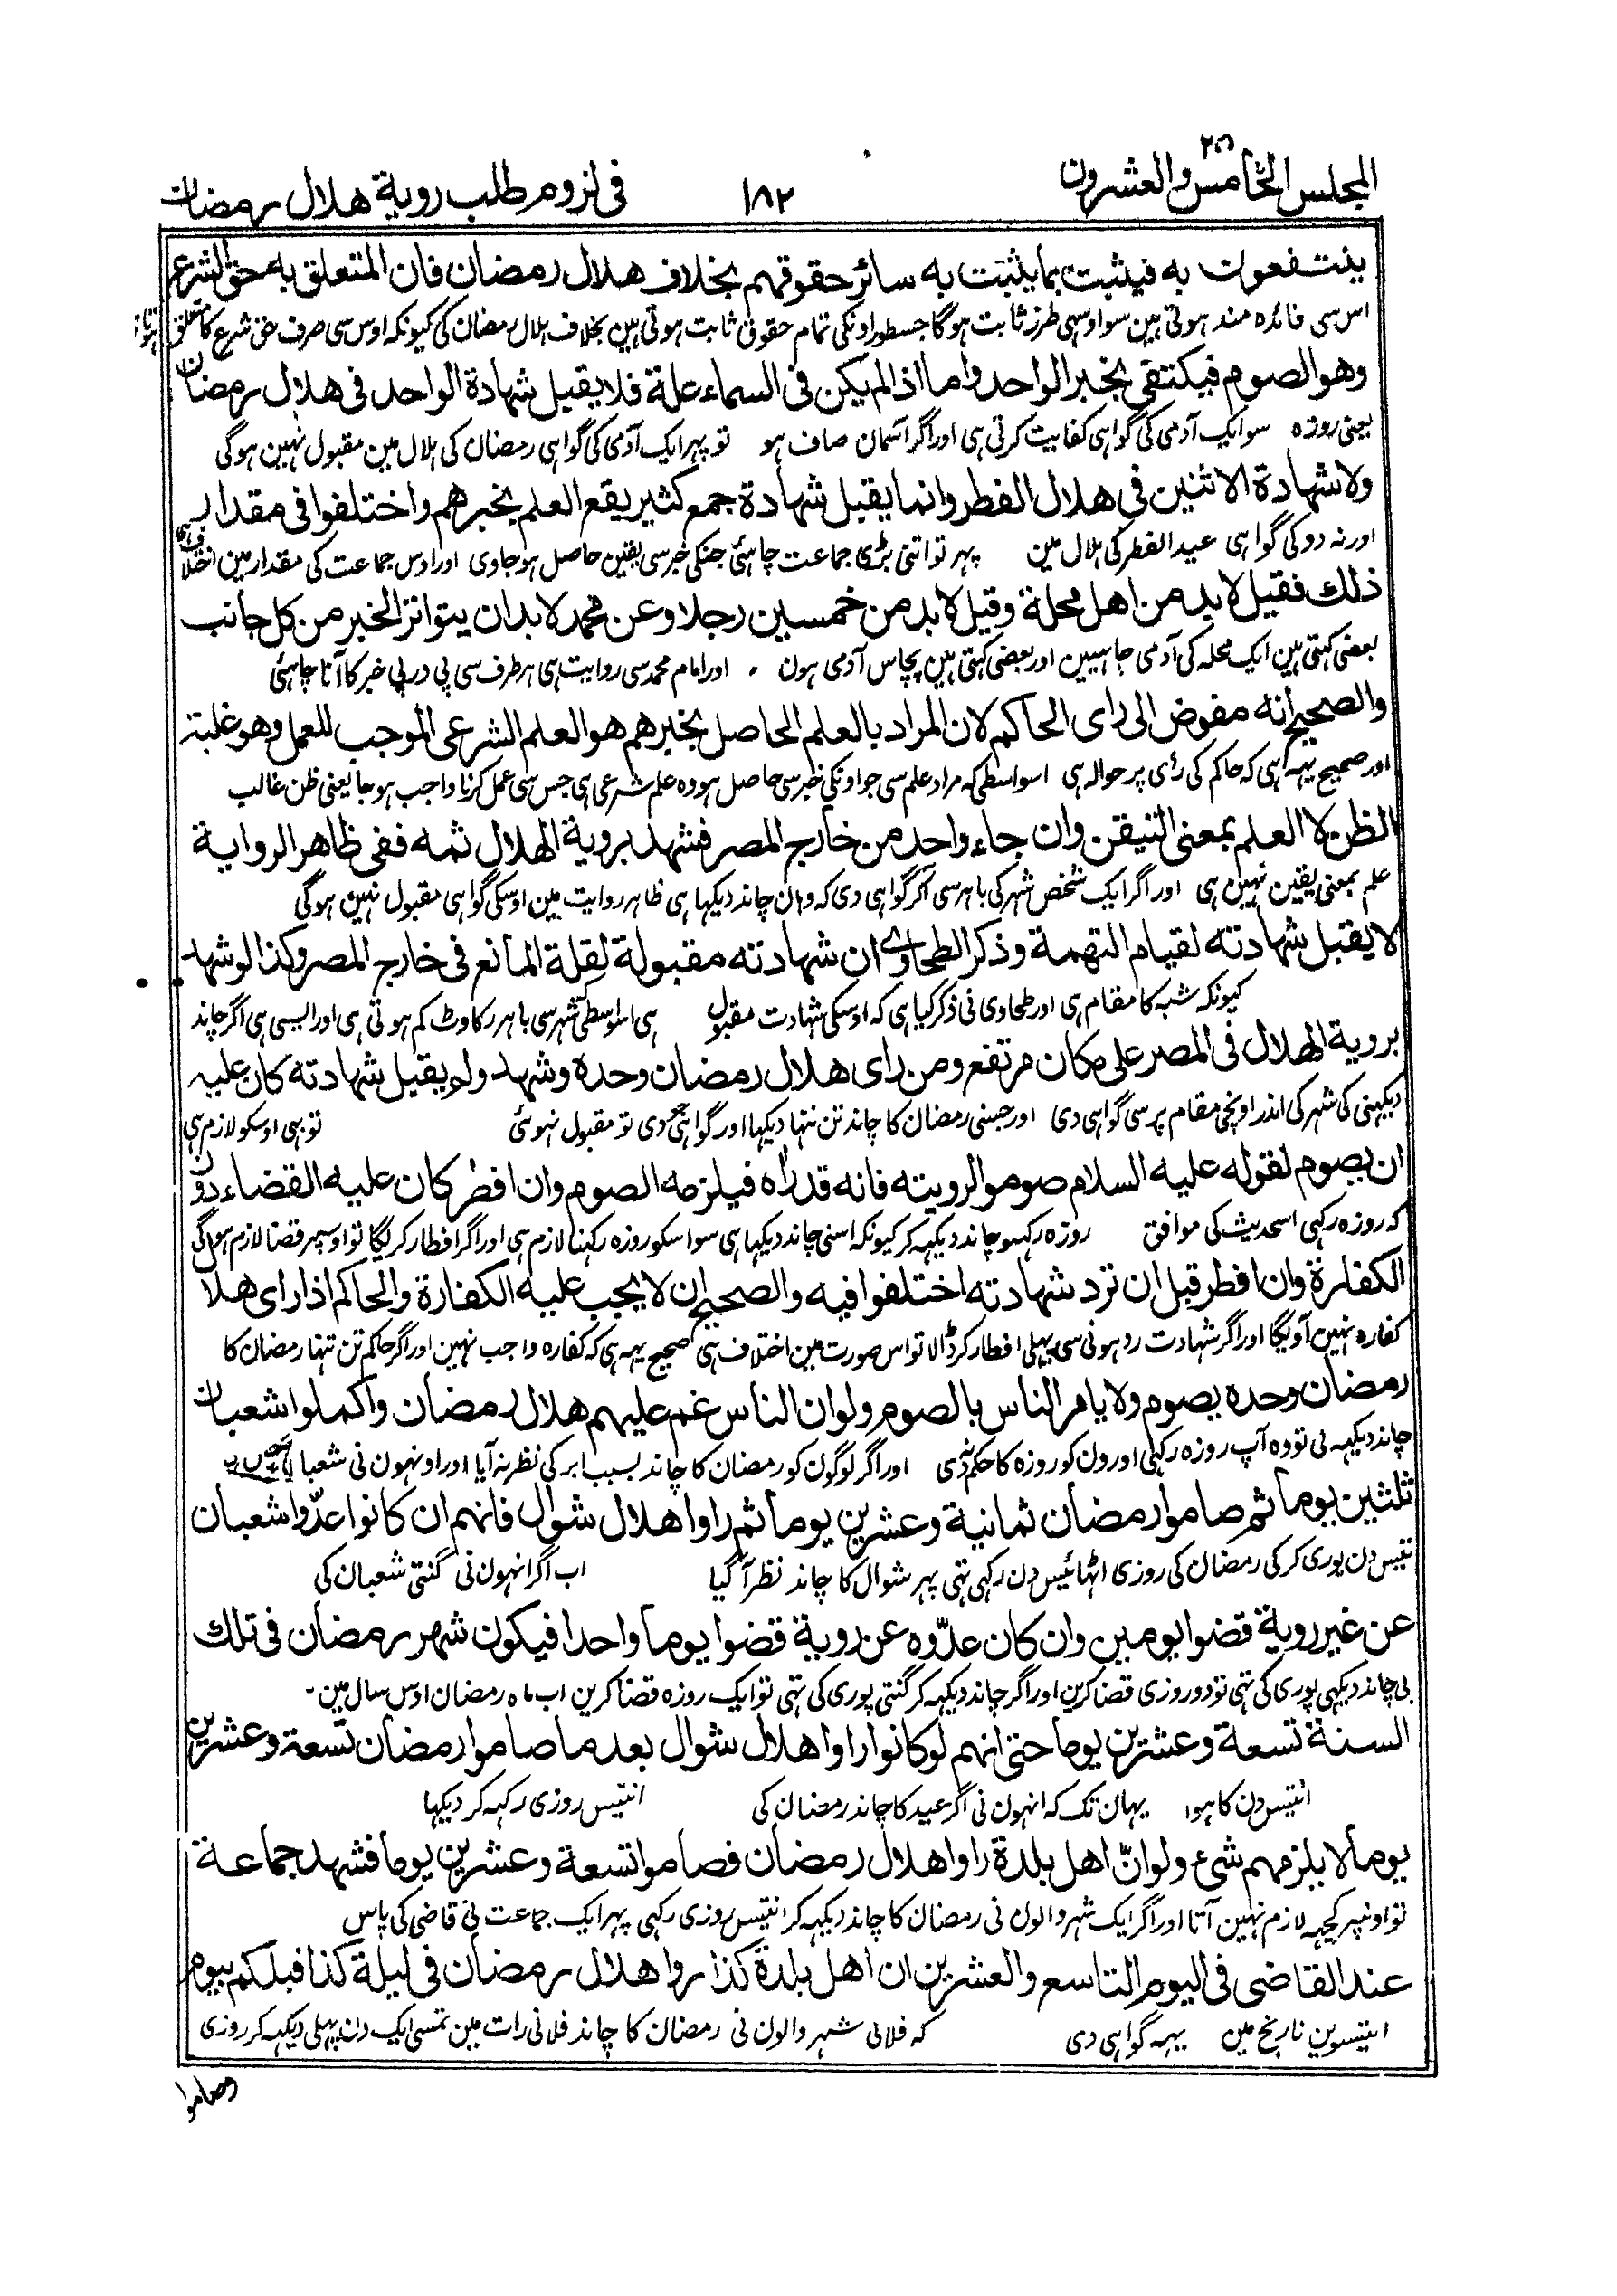 المجلس الخامس والعشرون
۲۵
۱۸۲
فی لزوم طلب رویة هلال رمضان
ینتفعون به فیثبت بما یثبت به سائر حقوقهم بخلاف هلال رمضان فان المتعلق به حق الشرع
اس سی فائده مند ہوتی ہین سو اوسہی طرز ثابت ہوگا جسطور اونکی تمام حقوق ثابت ہوتی ہین بخلاف ہلال رمضان کی کیونکہ اوس سی صرف حق شرع کا متعلق ہوتا
وهو الصوم فیکتفی بخبر الواحد واما اذا لم یکن فی السماء علة فلا یقبل شهادة الواحد فی هلال رمضان
یعنی روزہ سو ایک آدمی کی گواہی کفایت کرتی ہی اور اگر آسمان صاف ہو تو پہر ایک آدمی کی گواہی رمضان کی ہلال مین مقبول نہین ہوگی
ولا شهادة الاثنین فی هلال الفطر وانما یقبل شهادة جمع کثیر یقع العلم بخبرهم واختلفوا فی مقدار
اور نہ دو کی گواہی عید الفطر کی ہلال مین پہر تو اتنی بڑی جماعت چاہئی جنکی خبر سی یقین حاصل ہو جاوی اور اوس جماعت کی مقدار مین اختلاف ہی
ذلك فقیل لا بد من اهل محلة وقیل لا بد من خمسین رجلا وعن محمد لا بد ان یتواتر الخبر من کل جانب
بعضی کہتی ہین ایک محلہ کی آدمی چاہیین اور بعضی کہتی ہین پچاس آدمی ہون اور امام محمد سی روایت ہی ہر طرف سی پی در پی خبر کا آنا چاہئی
والصحیح انه مفوض الی رای الحاکم لان المراد بالعلم الحاصل بخبرهم هو العلم الشرعی الموجب للعمل وهو غلبة
اور صحیح یہہ ہی کہ حاکم کی رأی پر حوالہ ہی اسواسطی کہ مراد علم سی جو اونکی خبر سی حاصل ہو وہ علم شرعی ہی جس سی عمل کرنا واجب ہو جا یعنی ظن غالب
الظن لا العلم بمعنی التیقن وان جاء واحد من خارج المصر فشهد برویة الهلال ثمه ففی ظاهر الروایة
علم بمعنی یقین نہین ہی اور اگر ایک شخص شہر کی باہر سی آکر گواہی دی کہ وہان چاند دیکہا ہی ظاہر روایت مین اوسکی گواہی مقبول نہین ہوگی
لا یقبل شهادته لقیام التهمة وذکر الطحاوی ان شهادته مقبولة لقلة المانع فی خارج المصر وکذا لو شهد
کیونکہ شبہ کا مقام ہی اور طحاوی نی ذکر کیا ہی کہ اوسکی شہادت مقبول ہی اسواسطی شہر سی باہر رکاوٹ کم ہوتی ہی اور ایسی ہی اگر چاند
برویة الهلال فی المصر علی مکان مرتفع ومن رای هلال رمضان وحده وشهد ولم یقبل شهادته کان علیه
دیکہنی کی شہر کی اندر اونچی مقام پر سی گواہی دی اور جسنی رمضان کا چاند تن تنہا دیکہا اور گواہی دی تو مقبول نہوئی تو بہی اوسکو لازم ہی
ان یصوم لقوله علیه السلام صوموا لرویته فانه قد راه فیلزمه الصوم وان افطر کان علیه القضاء دون
کہ روزہ رکہی اسحدیث کی موافق روزہ رکہو چاند دیکہہ کر کیونکہ اسنی چاند دیکہا ہی سو اسکو روزہ رکہنا لازم ہی اور اگر افطار کر لیگا تو اوسپر قضا لازم ہوگی
الکفارة وان افطر قبل ان ترد شهادته اختلفوا فیه والصحیح ان لا یجب علیه الکفارة والحاکم اذا رای هلال
کفارہ نہین آویگا اور اگر شہادت رد ہونی سی پہلی افطار کر ڈالا تو اس صورت مین اختلاف ہی صحیح یہہ ہی کہ کفارہ واجب نہین اور اگر حاکم تن تنہا رمضان کا
رمضان وحده یصوم ولا یامر الناس بالصوم ولو ان الناس غم علیهم هلال رمضان واکملوا شعبان
چاند دیکہہ لی تو وہ آپ روزہ رکہی اورون کو روزہ کا حکم ندی اور اگر لوگون کو رمضان کا چاند بسبب ابر کی نظر نہ آیا اور اونہون نی شعبان
ثلثین یوما ثم صاموا رمضان ثمانیة وعشرین یوما ثم راوا هلال شوال فانهم ان کانوا عدّوا شعبان
تیس دن پوری کر کی رمضان کی روزی اٹہائیس دن رکہی تہی پہر شوال کا چاند نظر آگیا اب اگر انہون نی گنتی شعبان کی
عن غیر رویة قضوا یومین وان کان عدّوه عن رویة قضوا یوما واحدا فیکون شهر رمضان فی تلك
بی چاند دیکہی پوری کی تہی تو دو روزی قضا کرین اور اگر چاند دیکہہ کر گنتی پوری کی تہی تو ایک روزہ قضا کرین اب ماہ رمضان اوس سال مین
السنة تسعة وعشرین یوما حتی انهم لو کانوا راوا هلال شوال بعد ما صاموا رمضان تسعة وعشرین
انتیس دن کا ہوا یہان تک کہ انہون نی اگر عید کا چاند رمضان کی انتیس روزی رکہہ کر دیکہا
یوما لا یلزمهم شیء ولو انّ اهل بلدة راوا هلال رمضان فصاموا تسعة وعشرین یوما فشهد جماعة
تو اونپر کچہہ لازم نہین آتا اور اگر ایک شہر والون نی رمضان کا چاند دیکہہ کر انتیس روزی رکہی پہر ایک جماعت نی قاضی کی پاس
عند القاضی فی الیوم التاسع والعشرین ان اهل بلدة کذا راوا هلال رمضان فی لیلة کذا قبلکم بیوم
انتیسوین تاریخ مین یہہ گواہی دی کہ فلانی شہر والون نی رمضان کا چاند فلانی رات مین تمسی ایک دن پہلی دیکہہ کر روزی
وصاموا